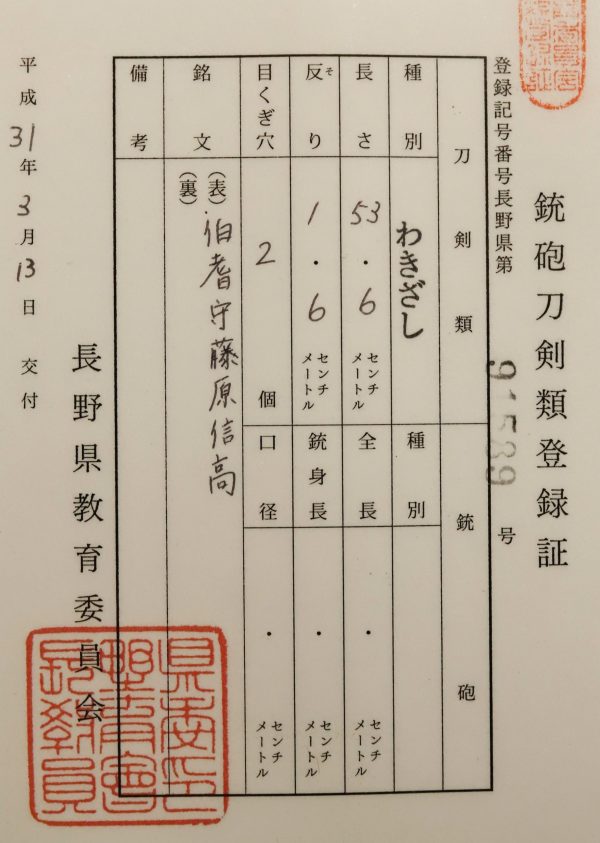 銃砲刀剣類登録証
登録記号番号長野県第91539号
刀剣類
銃砲
種別
わきざし
種別
長さ
53.6
センチメートル
全長
・
センチメートル
反り
そ
1.6
センチメートル
銃身長
・
センチメートル
目くぎ穴
2
個
口径
・
センチメートル
銘文
(表)伯耆守藤原信高
(裏)
備考
長野県教育委員会
平成31年3月13日交付